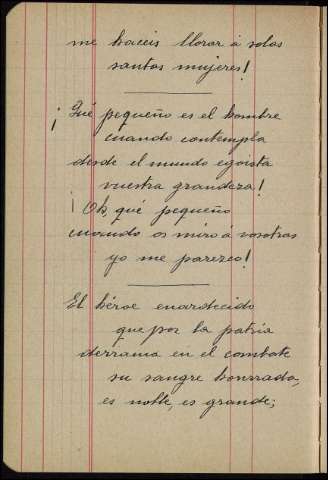 me haceis llorar á solas
santas mujeres!
¡Qué pequeño es el hombre
cuando contempla
desde el mundo egoista
vuestra grandeza!
¡Oh, qué pequeño
cuando os miro á vosotras
yo me parezco!
El héroe enardecido
que por la patria
derrama en el combate
su sangre honrada,
es noble, es grande;